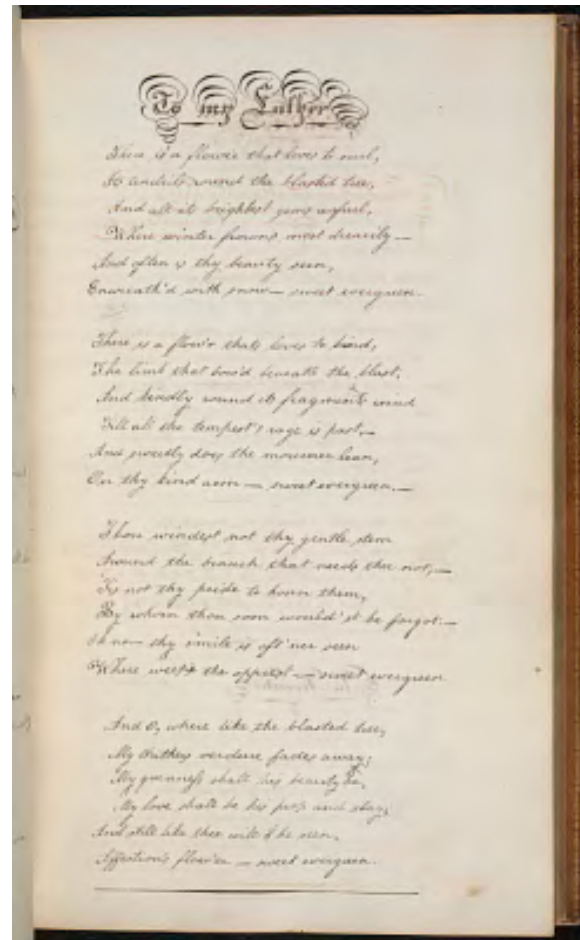 To my Father
There is a flower that loves to curl,
Its tendrils round the blasted tree,
And all its brightest gems unfurl,
Where winter frowns most drearily —
And often is thy beauty seen,
Enwreath'd with snow — sweet evergreen.
There is a flow'r that loves to bind,
The limb that bow'd beneath the blast,
And kindly round its fragments wind
Till all the tempest's rage is past, —
And sweetly does the mourner lean,
On thy kind arm — sweet evergreen. —
Thou windest not thy gentle stem
Around the branch that needs thee not, —
'Tis not thy pride to honor them,
By whom thou soon would'st be forgot: —
thy smile is oft'ner seen
Where weeps the opprest — sweet evergreen
And O, where like the blasted tree,
My Father's verdure fades away;
My greenness shall his beauty be,
My love shall be his prop and stay;
And still like thee will I be seen,
Affection's flow'er — sweet evergreen.